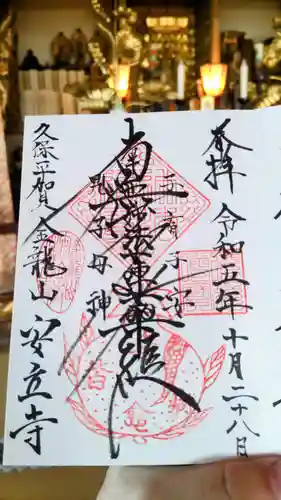 奉拝 令和五年十月二十八日
南無妙法蓮華経
鬼子母神
久保平賀 金龍山 安立寺